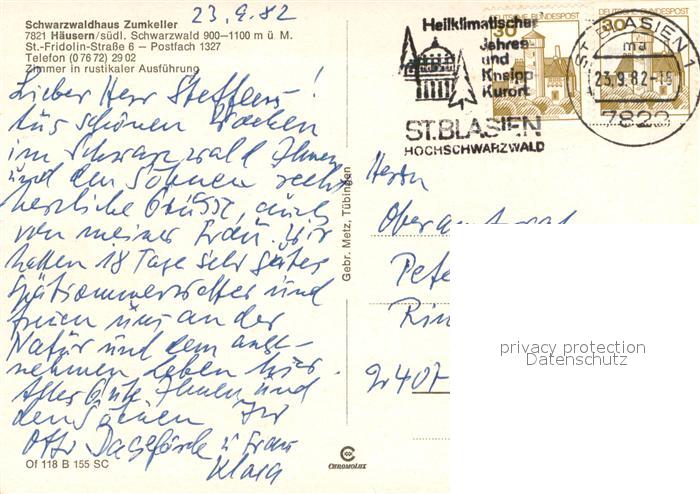 23.9.82
Schwarzwaldhaus Zumkeller
7821 Häusern/südl. Schwarzwald 900–1100 m ü. M.
St.-Fridolin-Straße 6 – Postfach 1327
Telefon (0 76 72) 29 02
Zimmer in rustikaler Ausführung
Lieber Herr Steffens!
Aus schönen Wochen
im Schwarzwald Ihnen
und den Söhnen recht
herzliche Grüsse, auch
von meiner Frau. Wir
hatten 18 Tage sehr gutes
Spätsommerwetter und
freuen uns an der
Natur und dem ange-
nehmen Leben hier.
Alles Gute Ihnen und
den Söhnen Ihr
Otto Dageförde u Frau
Klara
Of 118 B 155 SC
Gebr. Metz, Tübingen
CHROMOLUX
Heilklimatischer
Jahres
und
Kneipp
Kurort
ST. BLASIEN
HOCHSCHWARZWALD
30 DEUTSCHE BUNDESPOST
30 DEUTSCHE BUNDESPOST
ST. BLASIEN 1
ma
23.9.82-15
7822
Herrn
Pete
Rin
2407
privacy protection
Datenschutz